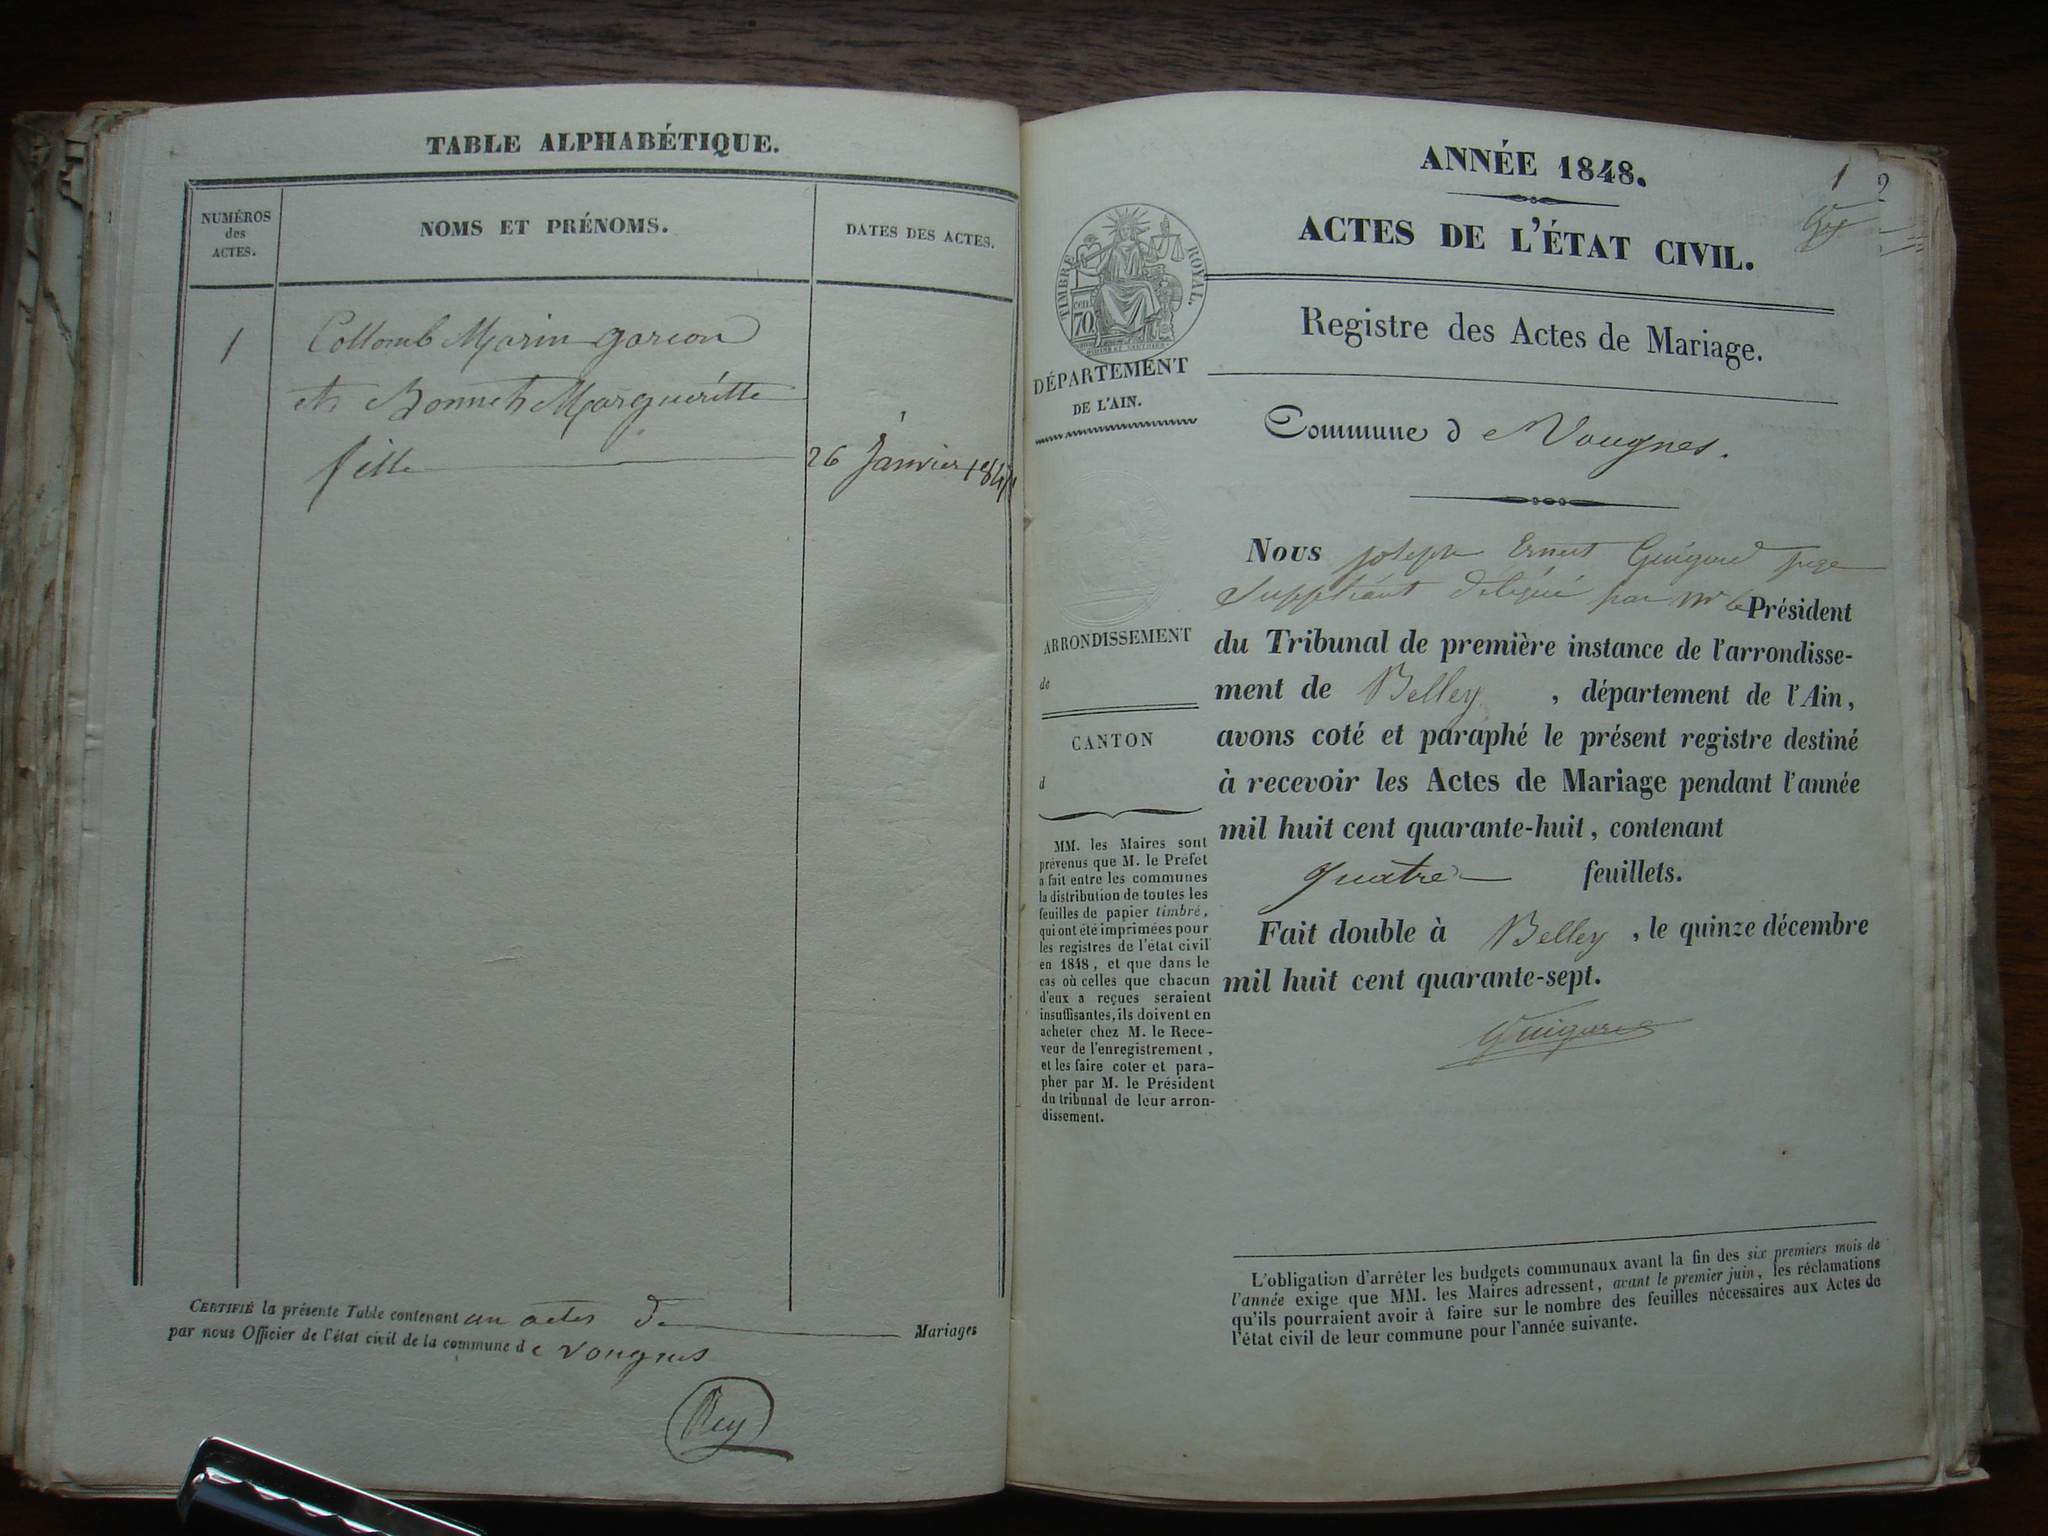 TABLE ALPHABÉTIQUE.
NUMÉROS
des
ACTES.
NOMS ET PRÉNOMS.
DATES DES ACTES.
1
Collomb Marin garcon
et Bonnet Margueritte
fille
26 Janvier 184
CERTIFIÉ la présente Table contenant un actes de Mariages
par nous Officier de l'état civil de la commune de Vongnes
Rey
1 2
ANNÉE 1848.
ACTES DE L'ÉTAT CIVIL.
TIMBRE ROYAL.
cen
70
Registre des Actes de Mariage.
DÉPARTEMENT
DE L'AIN.
Commune de Vongnes.
Nous Joseph Ernest Guigard juge
Suppléant délégué par mr le Président
du Tribunal de première instance de l'arrondisse-
ment de Belley, département de l'Ain,
avons coté et paraphé le présent registre destiné
à recevoir les Actes de Mariage pendant l'année
mil huit cent quarante-huit, contenant
quatre feuillets.
Fait double à Belley, le quinze décembre
mil huit cent quarante-sept.
ARRONDISSEMENT
de
CANTON
d
MM. les Maires sont
prévenus que M. le Préfet
a fait entre les communes
la distribution de toutes les
feuilles de papier timbré,
qui ont été imprimées pour
les registres de l'état civil
en 1848, et que dans le
cas où celles que chacun
d'eux a reçues seraient
insuffisantes, ils doivent en
acheter chez M. le Rece-
veur de l'enregistrement,
et les faire coter et para-
pher par M. le Président
du tribunal de leur arron-
dissement.
L'obligation d'arrêter les budgets communaux avant la fin des six premiers mois de
l'année exige que MM. les Maires adressent, avant le premier juin, les réclamations
qu'ils pourraient avoir à faire sur le nombre des feuilles nécessaires aux Actes de
l'état civil de leur commune pour l'année suivante.